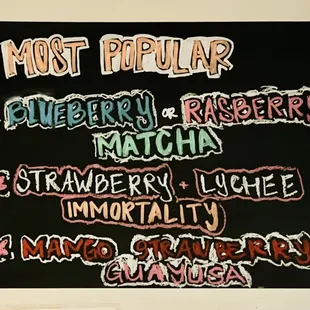 MOST POPULAR
BLUEBERRY OR RASBERRY
MATCHA
STRAWBERRY + LYCHEE
IMMORTALITY
MANGO STRAWBERRY
GUAYUSA